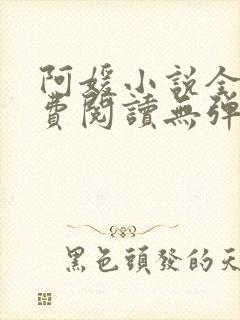 阿媛小說全
費閱讀無彈
黑色頭發的天